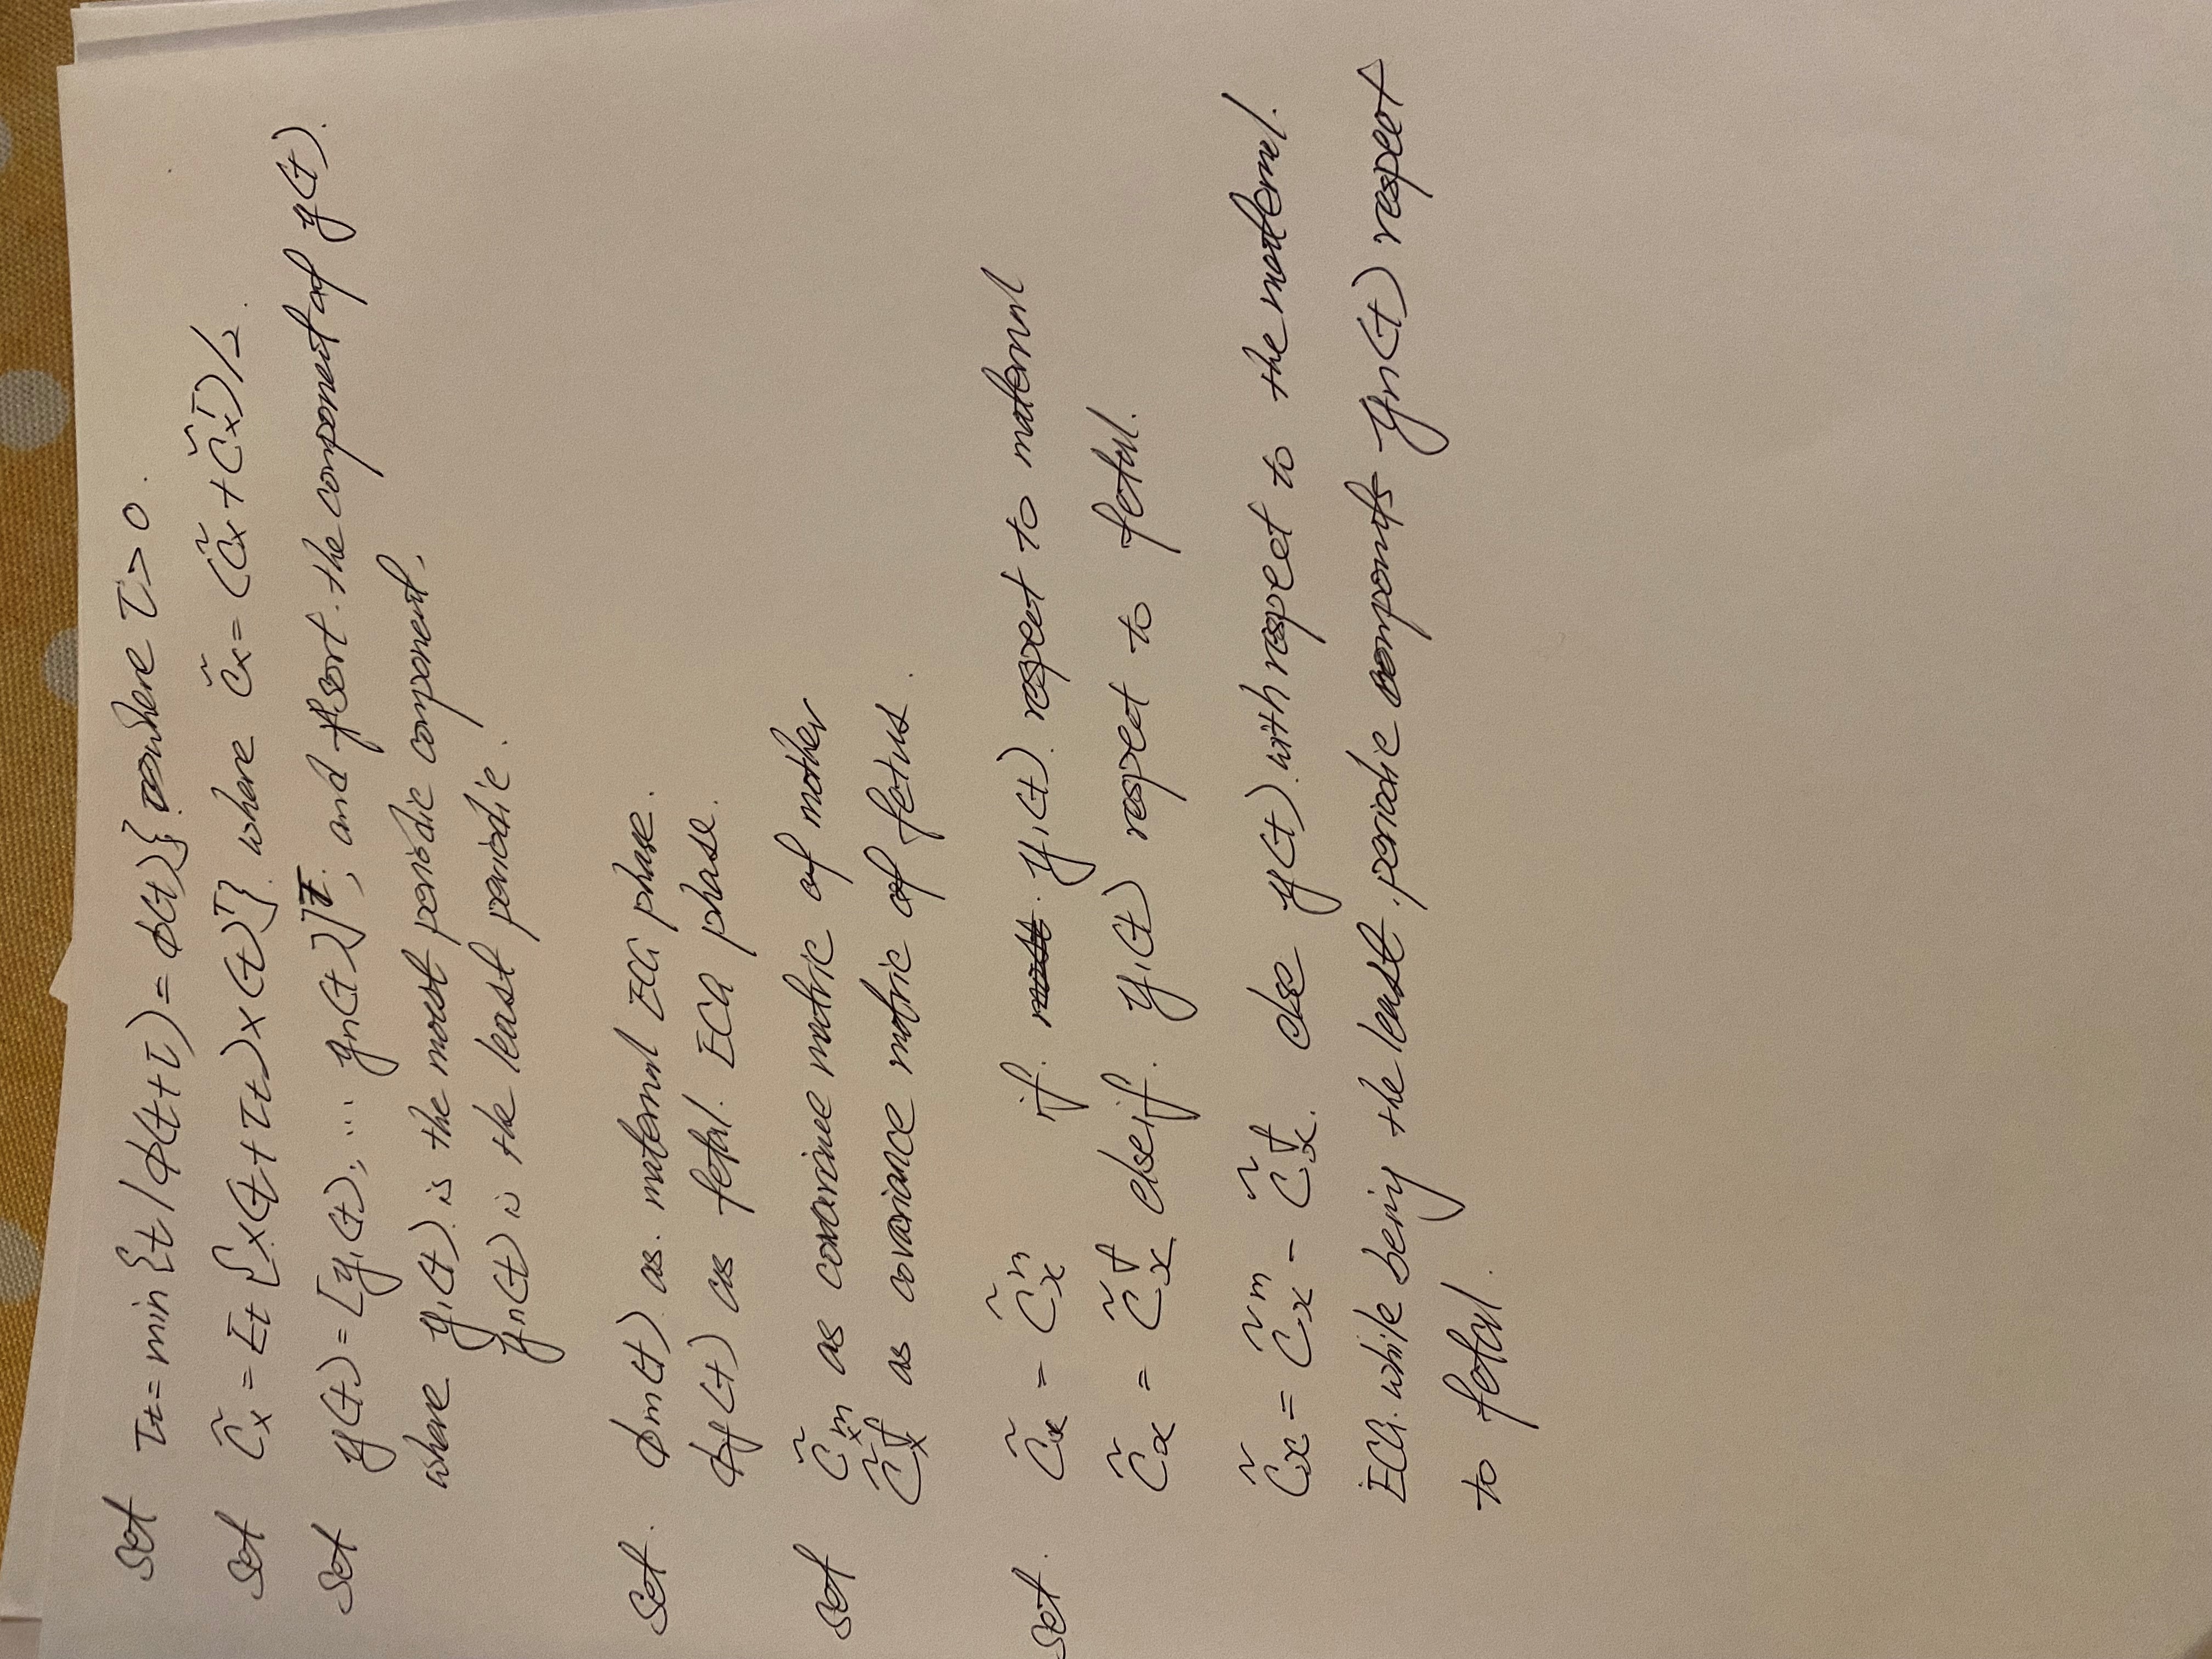 set τt = min{t / ϕ(t+τ) = ϕ(t)}. where τ > 0.
set C̃x = Et {x(t+τt)x(t)ᵀ}. where C̃x = (C̃x + C̃xᵀ)/2.
set y(t) = [y1(t), ... yn(t)]ᵀ, and sort the component of y(t).
where y1(t) is the most periodic component,
yn(t) is the least periodic.
set. ϕm(t) as. maternal ECG phase.
ϕf(t) as fetal. ECG phase.
set C̃xm as covariance matric of mother
C̃xf as covariance matric of fetus.
set. C̃x = C̃xm if. most. y1(t). respect to maternal
C̃x = C̃xf elseif. y1(t) respect to fetal.
C̃x = C̃xm - C̃xf. else y(t) with respect to the maternal.
ECG. while being the least. periodic yn(t) respect
to fetal.